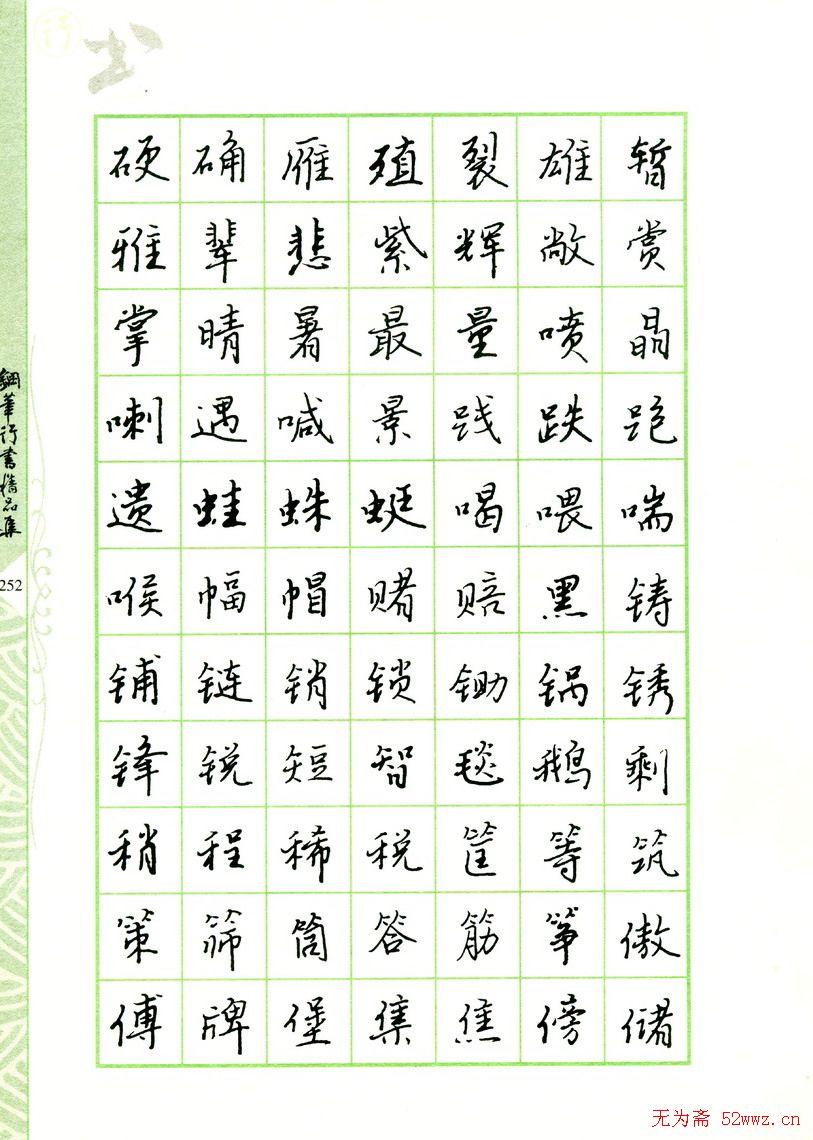 行书
硬确雁殖裂雄暂
雅辈悲紫辉敞赏
掌晴暑最量喷晶
喇遇喊景践跌跑
遗蛙蛛蜓喝喂喘
喉幅帽赌赔黑铸
铺链销锁锄锅锈
锋锐短智毯鹅剩
稍程稀税筐等筑
策筛筒答筋筝傲
傅牌堡集焦傍储
钢笔行书精品集
252
无为斋 52wwz.cn